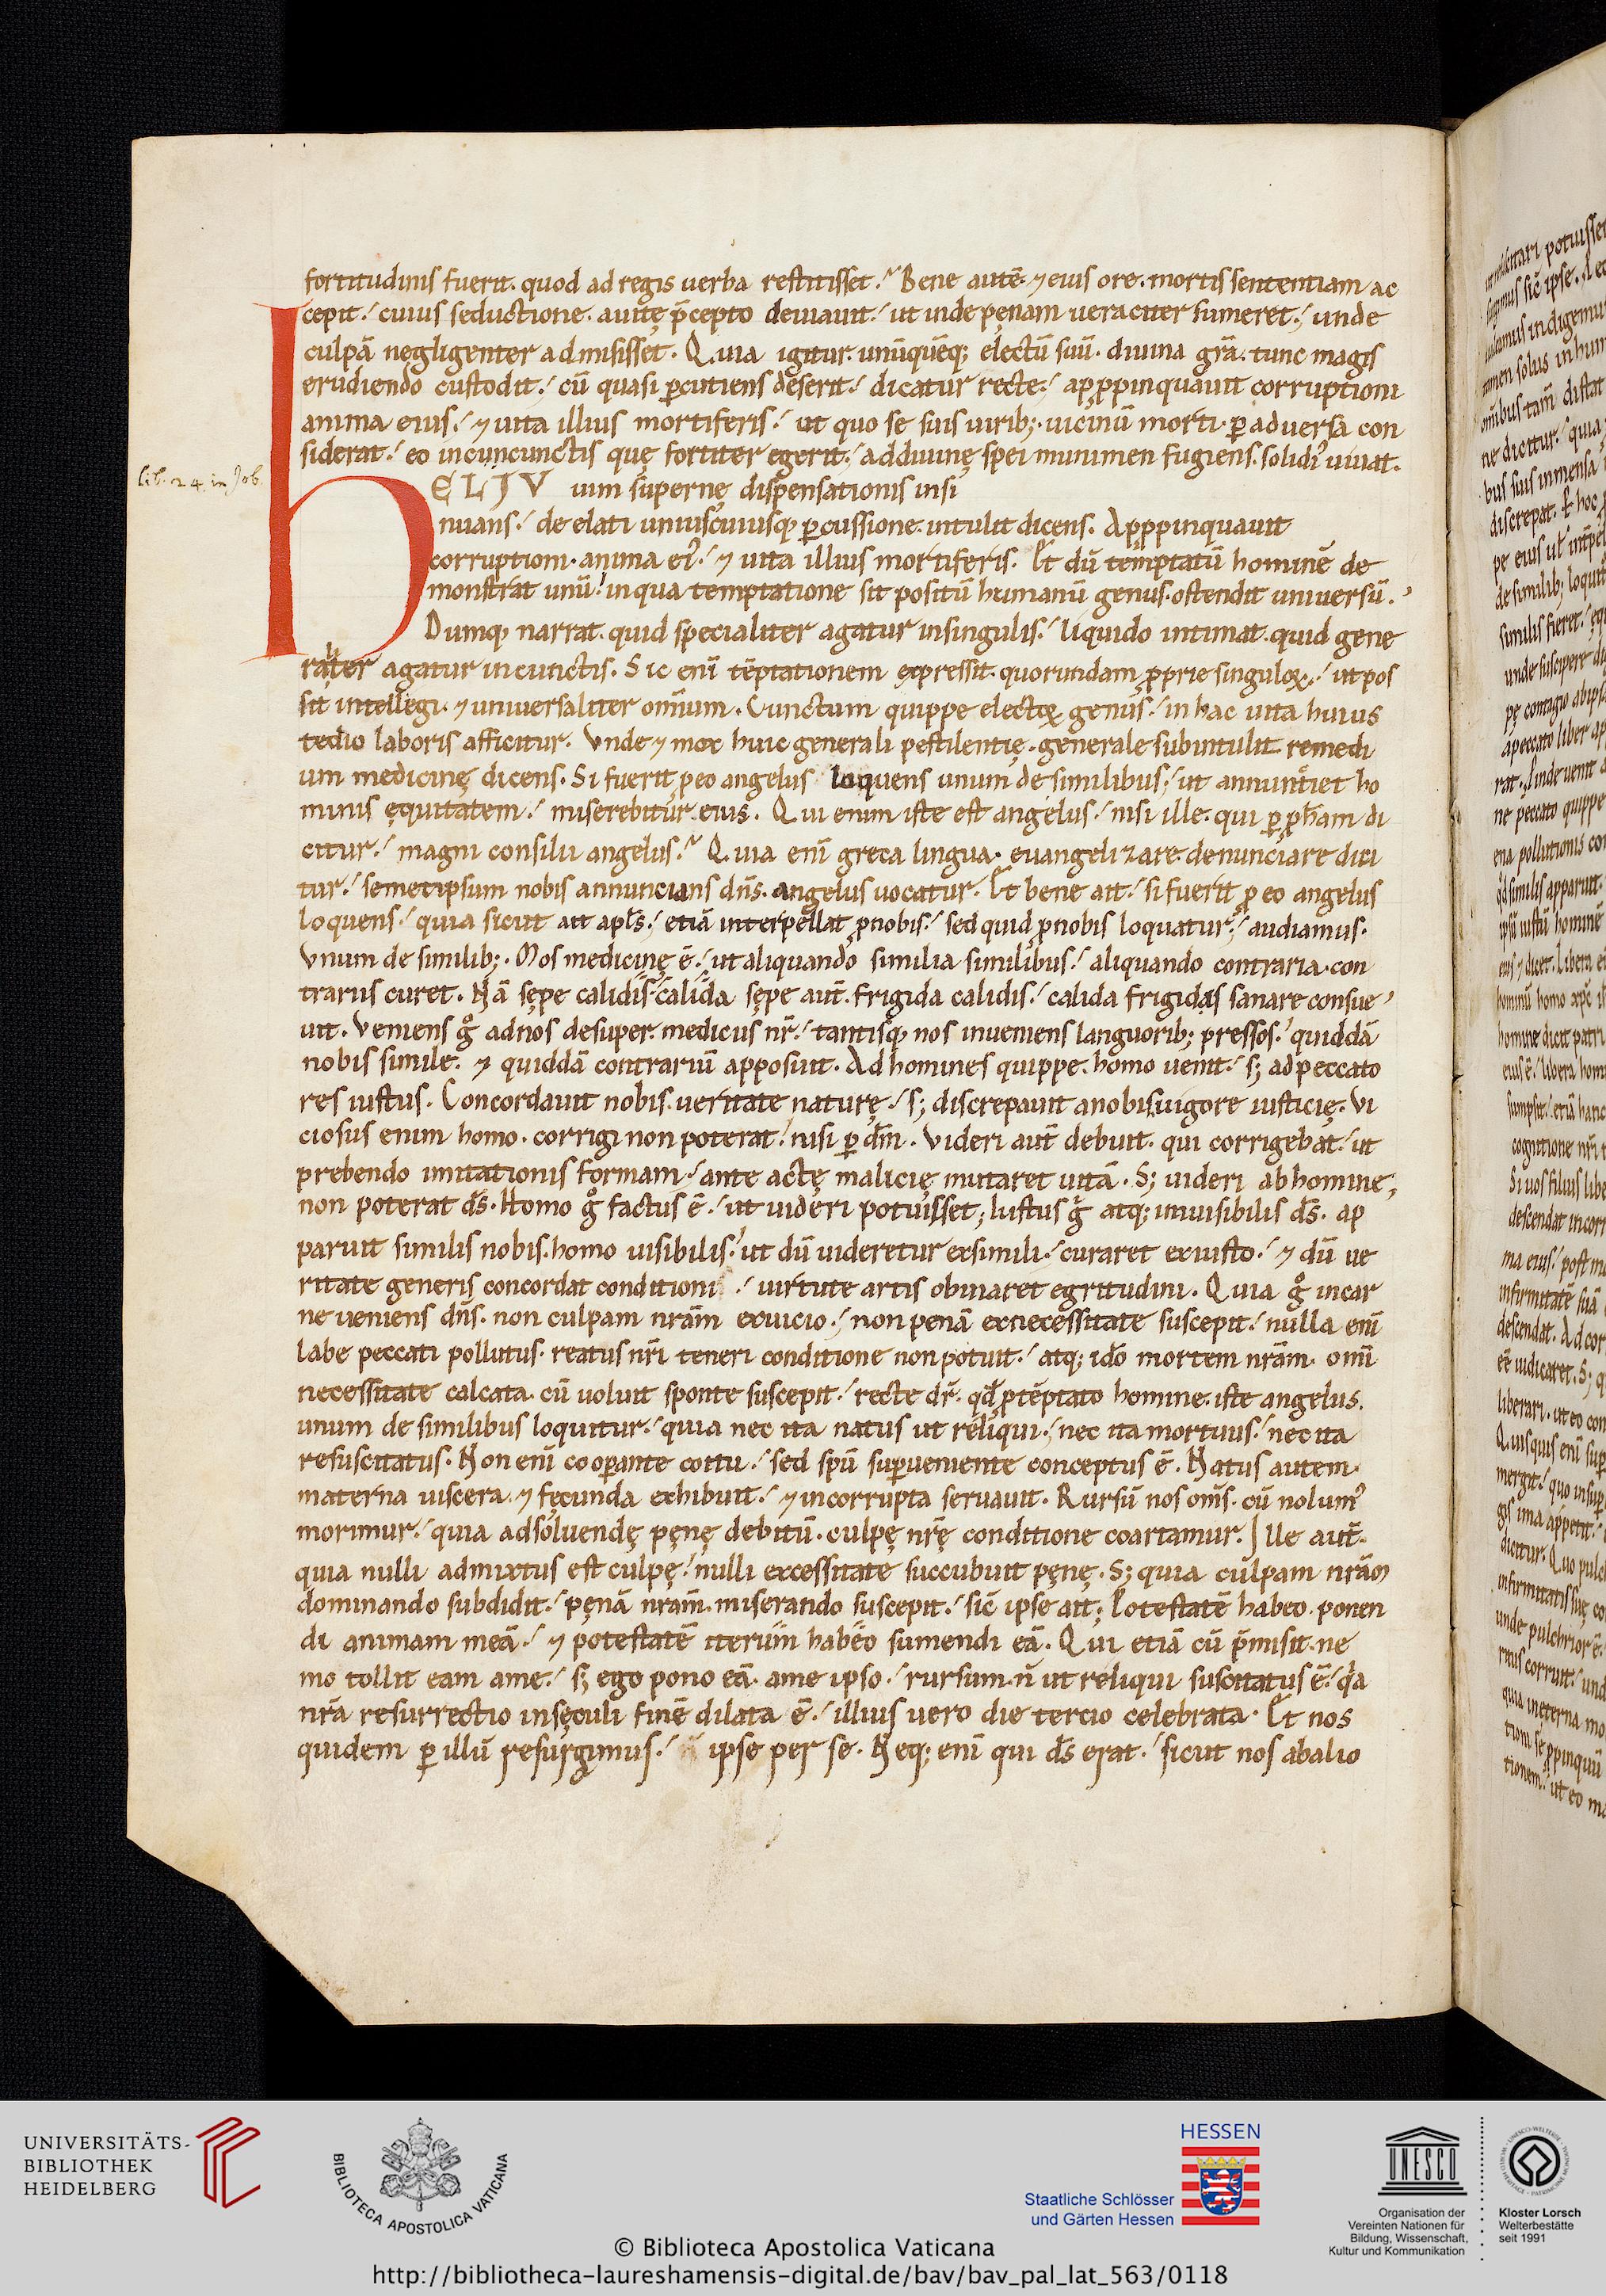 fortitudinis fuerit. quod ad regis uerba restitisset. Bene autē ⁊ eius ore. mortis sententiam ac
cepit. cuius seductione. a uitę p̄cepto deuiauit. ut inde pęnam ueraciter sumeret. unde
culpā negligenter admisisset. Quia igitur. unūquēq; electū suū. diuina gr̄a. tunc magis
erudiendo custodit. cū quasi ꝑcutiens deserit. dicatur recte. apꝓpinquauit corruptioni
anima eius. ⁊ uita illius mortiferis. ut quo se suis uirib;. uicinū morti. ꝑ aduersa con
siderat. eo incuncunctis quę fortiter egerit. ad diuinę spei munimen fugiens. solidi᾽ uiuat.
lib. 24. in Job.
HELIV uim supernę dispensationis insi
nuans. de elati uniuscuiusq; ꝑcussione. intulit dicens. Apꝓpinquauit
corruptioni. anima ei᾽. ⁊ uita illius mortiferis. Et dū temptatū hominē de
monstrat unū. in qua temptatione sit positū humanū genus. ostendit uniuersū.
Dumq; narrat. quid specialiter agatur in singulis. liquido intimat. quid gene
rał̄ter agatur in cunctis. Sic enī tēptationem expressit. quorundam ꝓprie singuloꝝ. ut pos
sit intellegi. ⁊ uniuersaliter omīum. Cunctum quippe electoꝝ genus. in hac uita huius
tedio laboris afficitur. Vnde ⁊ mox huic generali pestilentię. generale subintulit remedi
um medicinę dicens. Si fuerit ꝓ eo angelus loquens unum de similibus. ut annuntiet ho
minis ęquitatem. miserebitur eius. Qui enim iste est angelus. nisi ille. qui ꝑ ꝓph̄am di
citur. magni consilii angelus. Quia enī greca lingua. euangelizare. denunciare dici
tur. semetipsum nobis annuncians dn̄s. angelus uocatur. Et bene ait. si fuerit ꝓ eo angelus
loquens. quia sicut ait apl̄s. etiā interpellat ꝓ nobis. sed quid ꝓ nobis loquatur. audiamus.
Vnum de similib;. Mos medicinę ē. ut aliquando similia similibus. aliquando contraria con
trariis curet. Nā sępe calidis calida sępe aut̄. frigida calidis. calida frigidis sanare consue
uit. Veniens gͦ ad nos desuper. medicus nr̄. tantisq; nos inueniens languorib; pressos. quiddā
nobis simile. ⁊ quiddā contrariū apposuit. Ad homines quippe. homo uenit. s; ad peccato
res iustus. Concordauit nobis. ueritate naturę. s; discrepauit a nobis. uigore iusticię. Vi
ciosus enim homo. corrigi non poterat. nisi ꝑ dm̄. Videri aut̄ debuit. qui corrigebat. ut
prebendo imitationis formam. ante actę malicię mutaret uitā. S; uideri ab homine
non poterat ds̄. Homo gͦ factus ē. ut uideri potuisset; Iustus gͥ atq; inuisibilis ds̄. ap
paruit similis nobis. homo uisibilis. ut dū uideretur ex simili. curaret ex iusto. ⁊ dū ue
ritate generis concordat conditioni. uirtute artis obuiaret egritudini. Quia gͦ in car
ne ueniens dn̄s. non culpam nrām ex uicio. non penā ex necessitate suscepit. nulla enī
labe peccati pollutus. reatus nr̄i teneri conditione non potuit. atq; ideo mortem nrām. omī
necessitate calcata. cū uoluit sponte suscepit. recte dr̄. qd̄ ꝓ tēptato homine. iste angelus.
unum de similibus loquitur. quia nec ita natus ut reliqui. nec ita mortuus. nec ita
resuscitatus. Non enī cooꝑante coitu. sed spū suꝑueniente conceptus ē. Natus autem
materna uiscera. ⁊ fęcunda exhibuit. ⁊ incorrupta seruauit. Rursū nos om̄s. cū nolum᾽
morimur. quia ad soluendę pęnę debitū. culpę nr̄ę conditione coartamur. Ille aut̄.
quia nulli admixtus est culpę. nulli ex cessitate succubuit pęnę. S; quia culpam nrām
dominando subdidit. pęnā nrām. miserando suscepit. sic̄ ipse ait; Potestatē habeo ponen
di animam meā. ⁊ potestatē iterum habeo sumendi eā. Qui etiā cū p̄misit. ne
mo tollit eam a me. s; ego pono eā. a me ipso. rursum. n̄ ut reliqui suscitatus ē. qͥa
nr̄a resurrectio in sęculi finē dilata ē. illius uero die tercio celebrata. Et nos
quidem ꝑ illū resurgimus. ipse per se. Neq; enī qui ds̄ erat. sicut nos ab alio
UNIVERSITÄTS-
BIBLIOTHEK
HEIDELBERG
BIBLIOTECA APOSTOLICA VATICANA
HESSEN
Staatliche Schlösser
und Gärten Hessen
UNESCO
Organisation der
Vereinten Nationen für
Bildung, Wissenschaft,
Kultur und Kommunikation
Kloster Lorsch
Welterbestätte
seit 1991
© Biblioteca Apostolica Vaticana
http://bibliotheca-laureshamensis-digital.de/bav/bav_pal_lat_563/0118